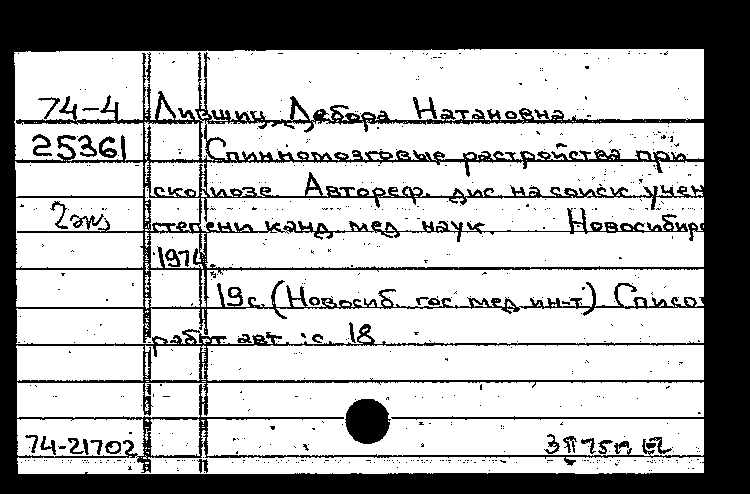 74-4 Лившиц Дебора Натановна.
25361 Спинномозговые растройства при
сколиозе. Автореф. дис на соиск учен
2 экз степени канд мед наук. Новосибирс
1974.
19 с. (Новосиб. гос. мед ин-т) Список
работ авт. : с. 18.
74-21702